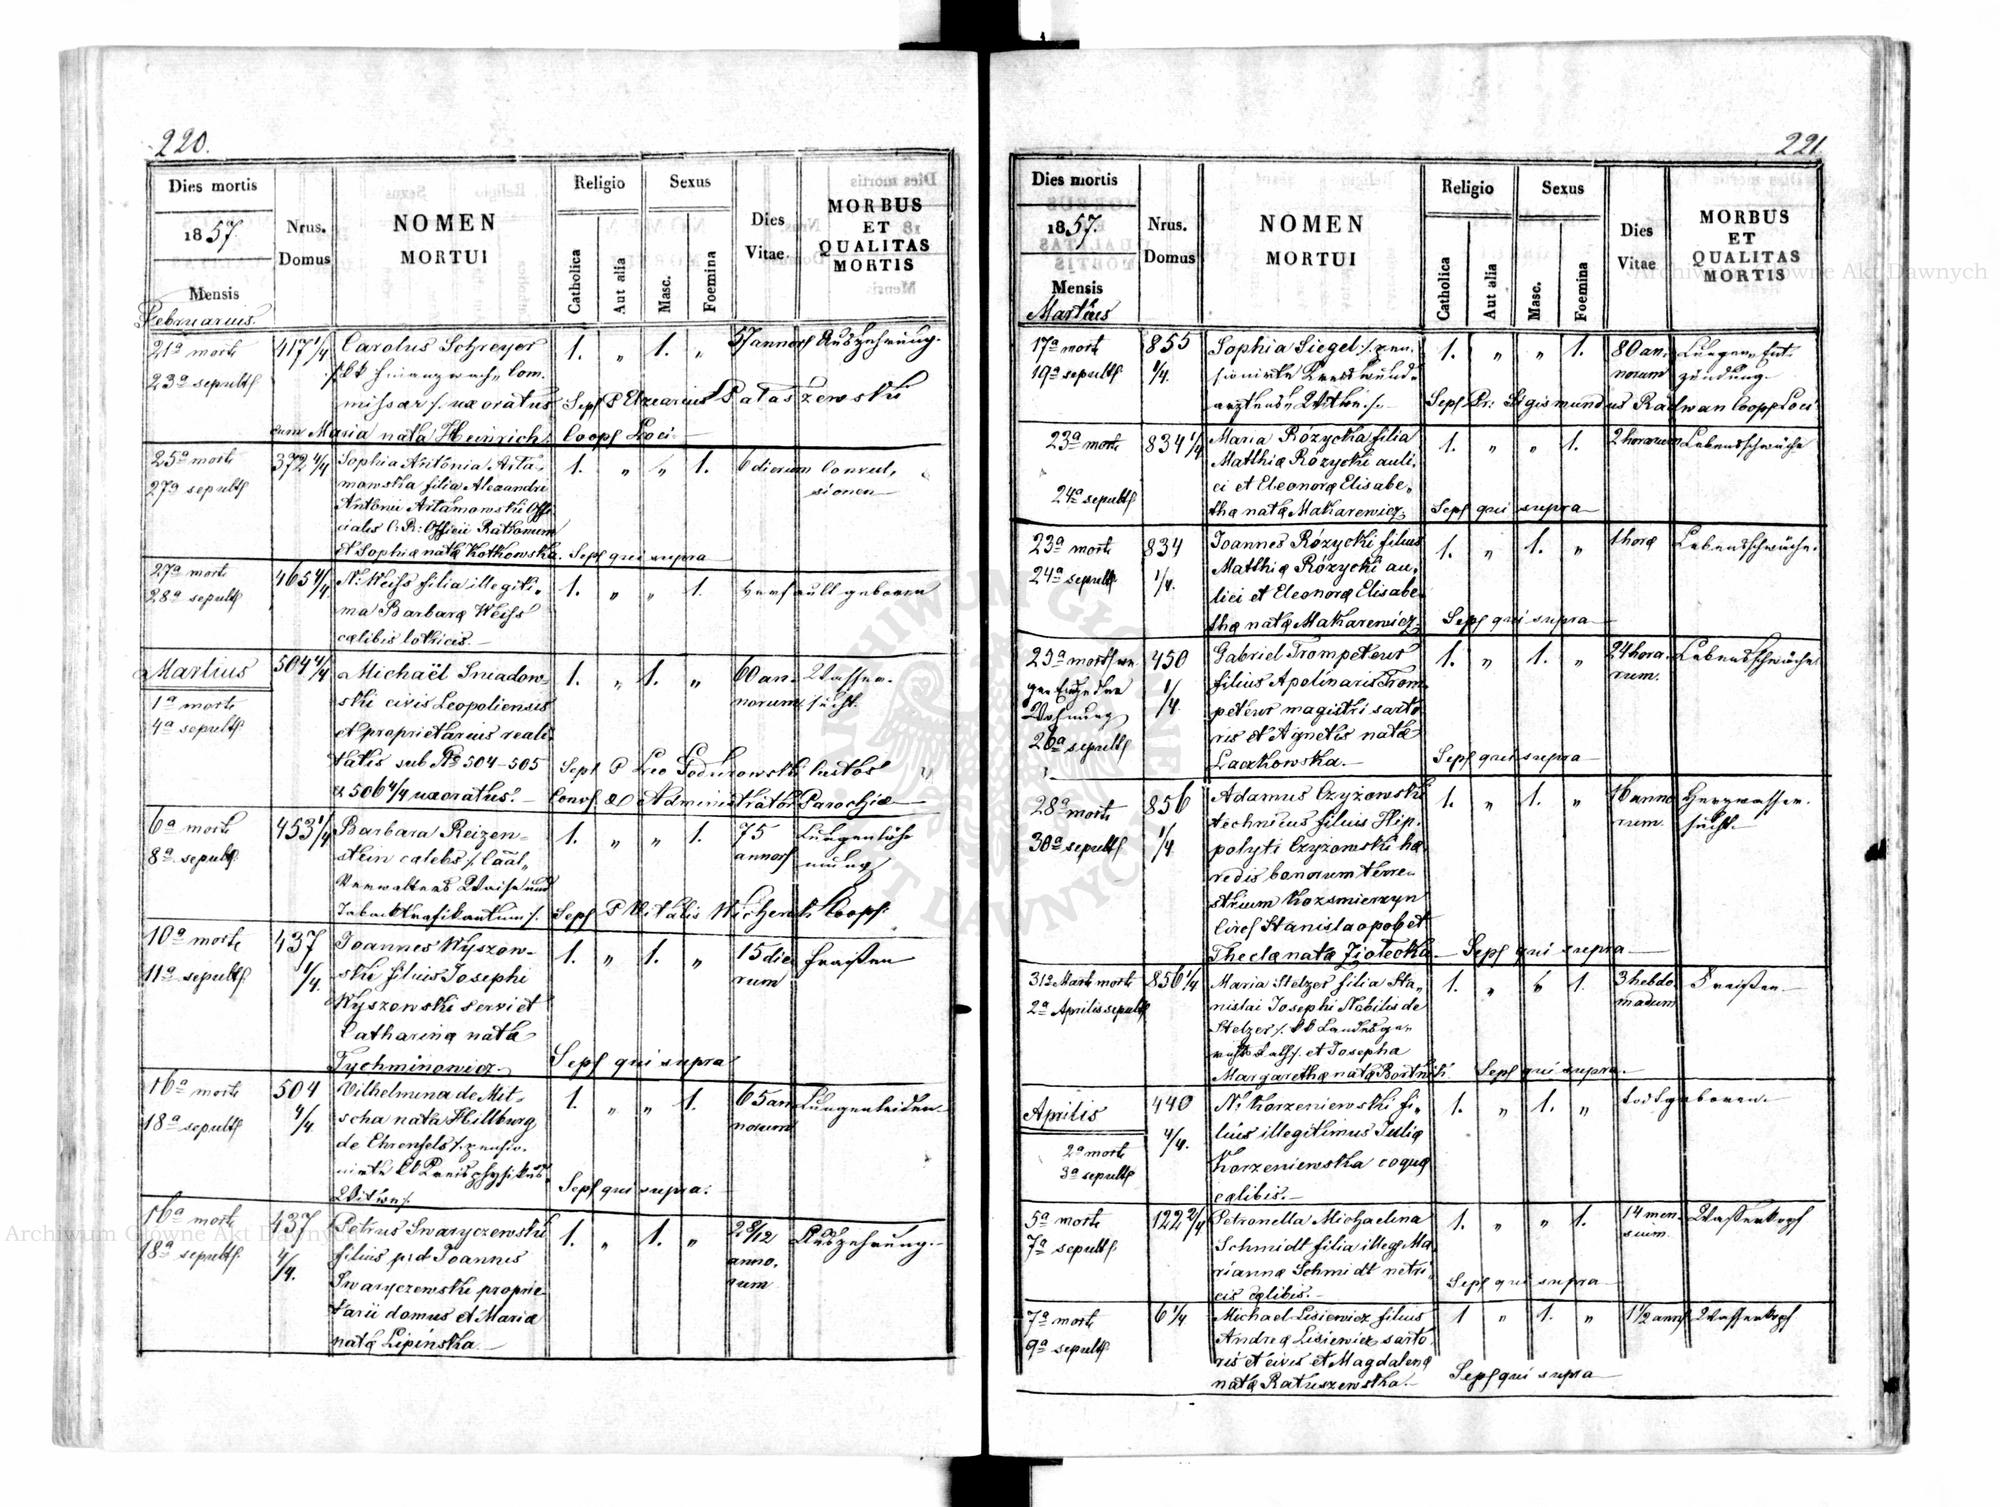 220.
Dies mortis
1857.
Mensis
Februarius.
Nrus.
Domus
NOMEN
MORTUI
Religio
Catholica
Aut alia
Sexus
Masc.
Foemina
Dies
Vitae
MORBUS
ET
QUALITAS
MORTIS
21a morte
23a sepults
417 1/4
Carolus Schreyer
/: kk Finanzwach Com.
missar /. uxoratus
cum Maria nata Heinrich.
1. „ 1. „
57 annors
Auszehrung.
Seps P Elzearius Pataszewski
Coops Loci
25a morte
27a sepults
372 4/4
Sophia Antonia Arta-
mowska filia Alexandri
Antonii Artamowski Offi
cialis C: R: Officii Rationum
et Sophia nata Kotkowska.
1. „ „ 1.
6 dierum
Convul,
sionen
Seps qui supra
27a morte
28a sepults
465 4/4
N: Weiss filia illegiti-
ma Barbara Weiss
caelibis lotricis.
1. „ „ 1.
Martius
1a morte
4a sepults
504 4/4
Michaël Sniadow-
ski civis Leopoliensis
et proprietarius reali-
tatis sub No 504-505
& 506 4/4 uxoratus.
1. „ 1. „
60 an-
norum
Wasser-
sucht.
Seps P Leo Godurowski custos
Convs & Administrator Parochiae
6a morte
8a sepults
453 1/4
Barbara Reizen-
stein caelebs /.
Verwalters Waise und
Tabaktrafikantin /.
1. „ „ 1.
75
annors
Lungenläh-
mung
Seps P Vitalis Wicherek Coops.
10a morte
11a sepults
437
1/4.
Joannes Wyszow-
ski filius Josephi
Wyszowski servi et
Catharina nata
Tychminowicz.
1. „ 1. „
15 die
rum
Fraisen
Seps qui supra
16a morte
18a sepults
504
4/4
Vilhelmina de Mit-
scha nata Hillburg
de Ehrenfels /: pensio-
nirte kk Kreisphysikus
Witwe /.
1. „ „ 1.
65 an
norum
Lungenleiden.
Seps qui supra.
16a morte
18a sepults
437
4/4.
Petrus Swaryczewski
filius p:d: Joannis
Swaryczewski proprie-
tarii domus et Maria
nata Lipinska.
1. „ 1. „
2 8/12
anno-
rum
Auszehrung.
221.
Dies mortis
1857.
Mensis
Martius
Nrus.
Domus
NOMEN
MORTUI
Religio
Catholica
Aut alia
Sexus
Masc.
Foemina
Dies
Vitae
MORBUS
ET
QUALITAS
MORTIS
17a morte
19a sepults
855
1/4.
Sophia Siegel /. pen-
sionirte Kreiswund-
arztens Witwe /.
1. „ „ 1.
80 an-
norum
Lungen Ent-
zündung.
Seps Pr: Sigismundus Radwan Coops Loci
23a morte
24a sepults
834 1/4
Maria Rózycka filia
Matthiae Rózycki auli-
ci et Eleonora Elisabe-
tha nata Makarewicz.
1. „ „ 1.
2 horarum
Lebensschwäche
Seps qui supra
23a morte
24a sepults
834
1/4.
Joannes Rózycki filius
Matthiae Rózycki au-
lici et Eleonora Elisabe-
tha nata Makarewicz.
1. „ 1. „
1 hora
Lebensschwäche.
Seps qui supra
23a morte
Wohnung
26a sepults
450
1/4.
Gabriel Trompeteur
filius Apolinaris Trom-
peteur magistri sarto
ris et Agnetis nata
Laczkowska.
1. „ 1. „
24 hora-
rum.
Lebensschwäche
Seps qui supra
28a morte
30a sepults
856
1/4
Adamus Czyżowski
technicus filius Hip-
polyti Czyzowski hae-
redis bonorum terre-
strium Kozsmierzyn
Circs Stanislaopols et
Thecla nata Ziotecka.
1. „ 1. „
16 anno
rum.
Herzwasser-
sucht.
Seps qui supra
31a Marti morte
2a Aprilis sepults
856 1/4
Maria Stelzer filia Sta-
nislai Josephi Nobilis de
Stelzer /. kk Landesge-
richts Rath /. et Josepha
Margaretha nata Bortnik.
1. „ „ 1.
3 hebdo-
madum
Fraisen.
Seps qui supra.
Aprilis
2a morte
3a sepults
440
4/4.
N: Korzeniewski fi-
lius illegitimus Julia
Korzeniewska coqua
caelibis.
1. „ 1. „
Todtgeboren.
5a morte
7a sepults
122 2/4
Petronella Michaelina
Schmidt filia illegs Ma-
rianna Schmidt netri-
cis caelibis.
1. „ „ 1.
14 men-
sium.
Wasserkopf
Seps qui supra
7a morte
9a sepults
6 1/4
Michael Lisiewicz filius
Andrea Lisiewicz sarto-
ris et civis et Magdalena
nata Ratuszewska.
1 „ 1. „
1 1/2 anns
Wasserkopf
Seps qui supra
Archiwum Główne Akt Dawnych